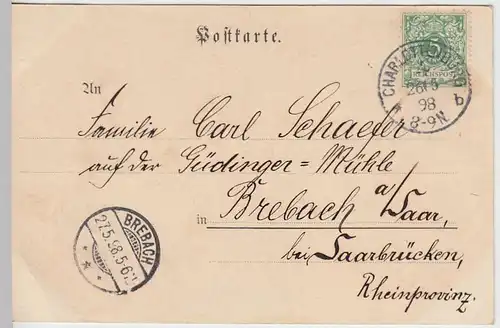 Postkarte.
5
REICHSPOST
CHARLOTTENBURG
26/5
98
8-9N
b
An
Familie Carl Schaefer
auf der Güdinger=Mühle
in Brebach a/Saar,
bei Saarbrücken,
Rheinprovinz.
BREBACH
27.5.98.5-6